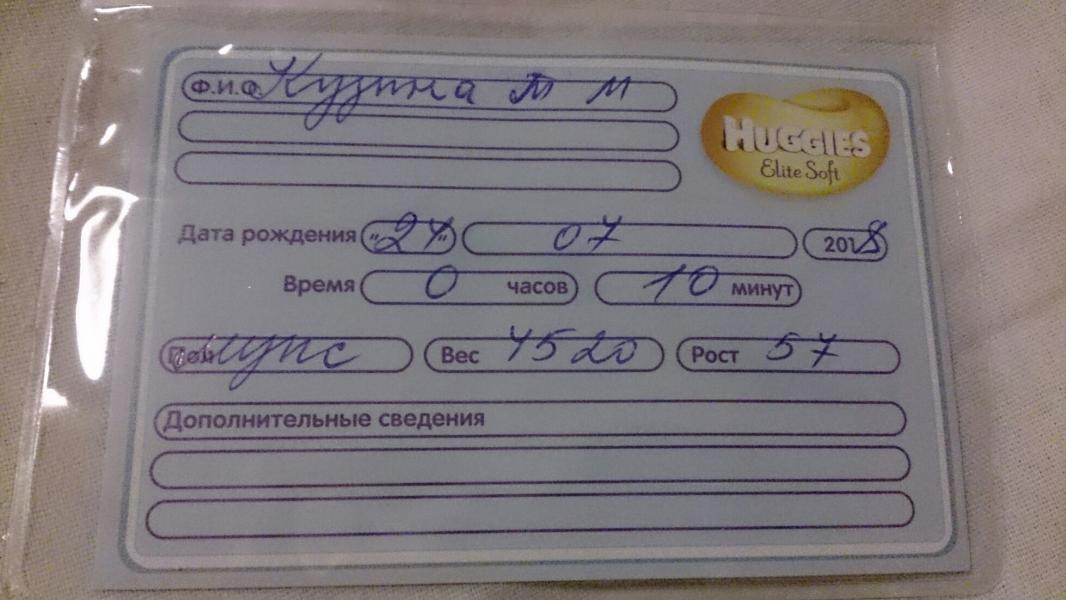 Ф.И.О. Кузина Т М
HUGGIES
Elite Soft
Дата рождения "24" 07 2018
Время 0 часов 10 минут
Пол Вес 4520 Рост 57
Дополнительные сведения